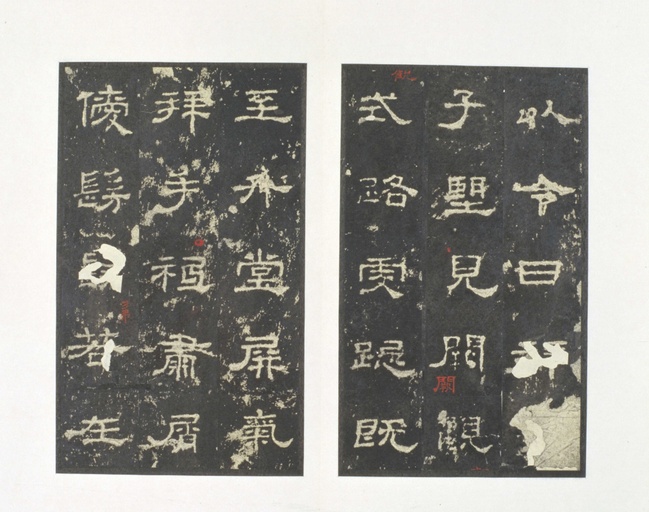 以令日
子朢見闕觀
闕
式路虔跽既
至升堂屏氣
拜手祗肅屑
僾髣若在